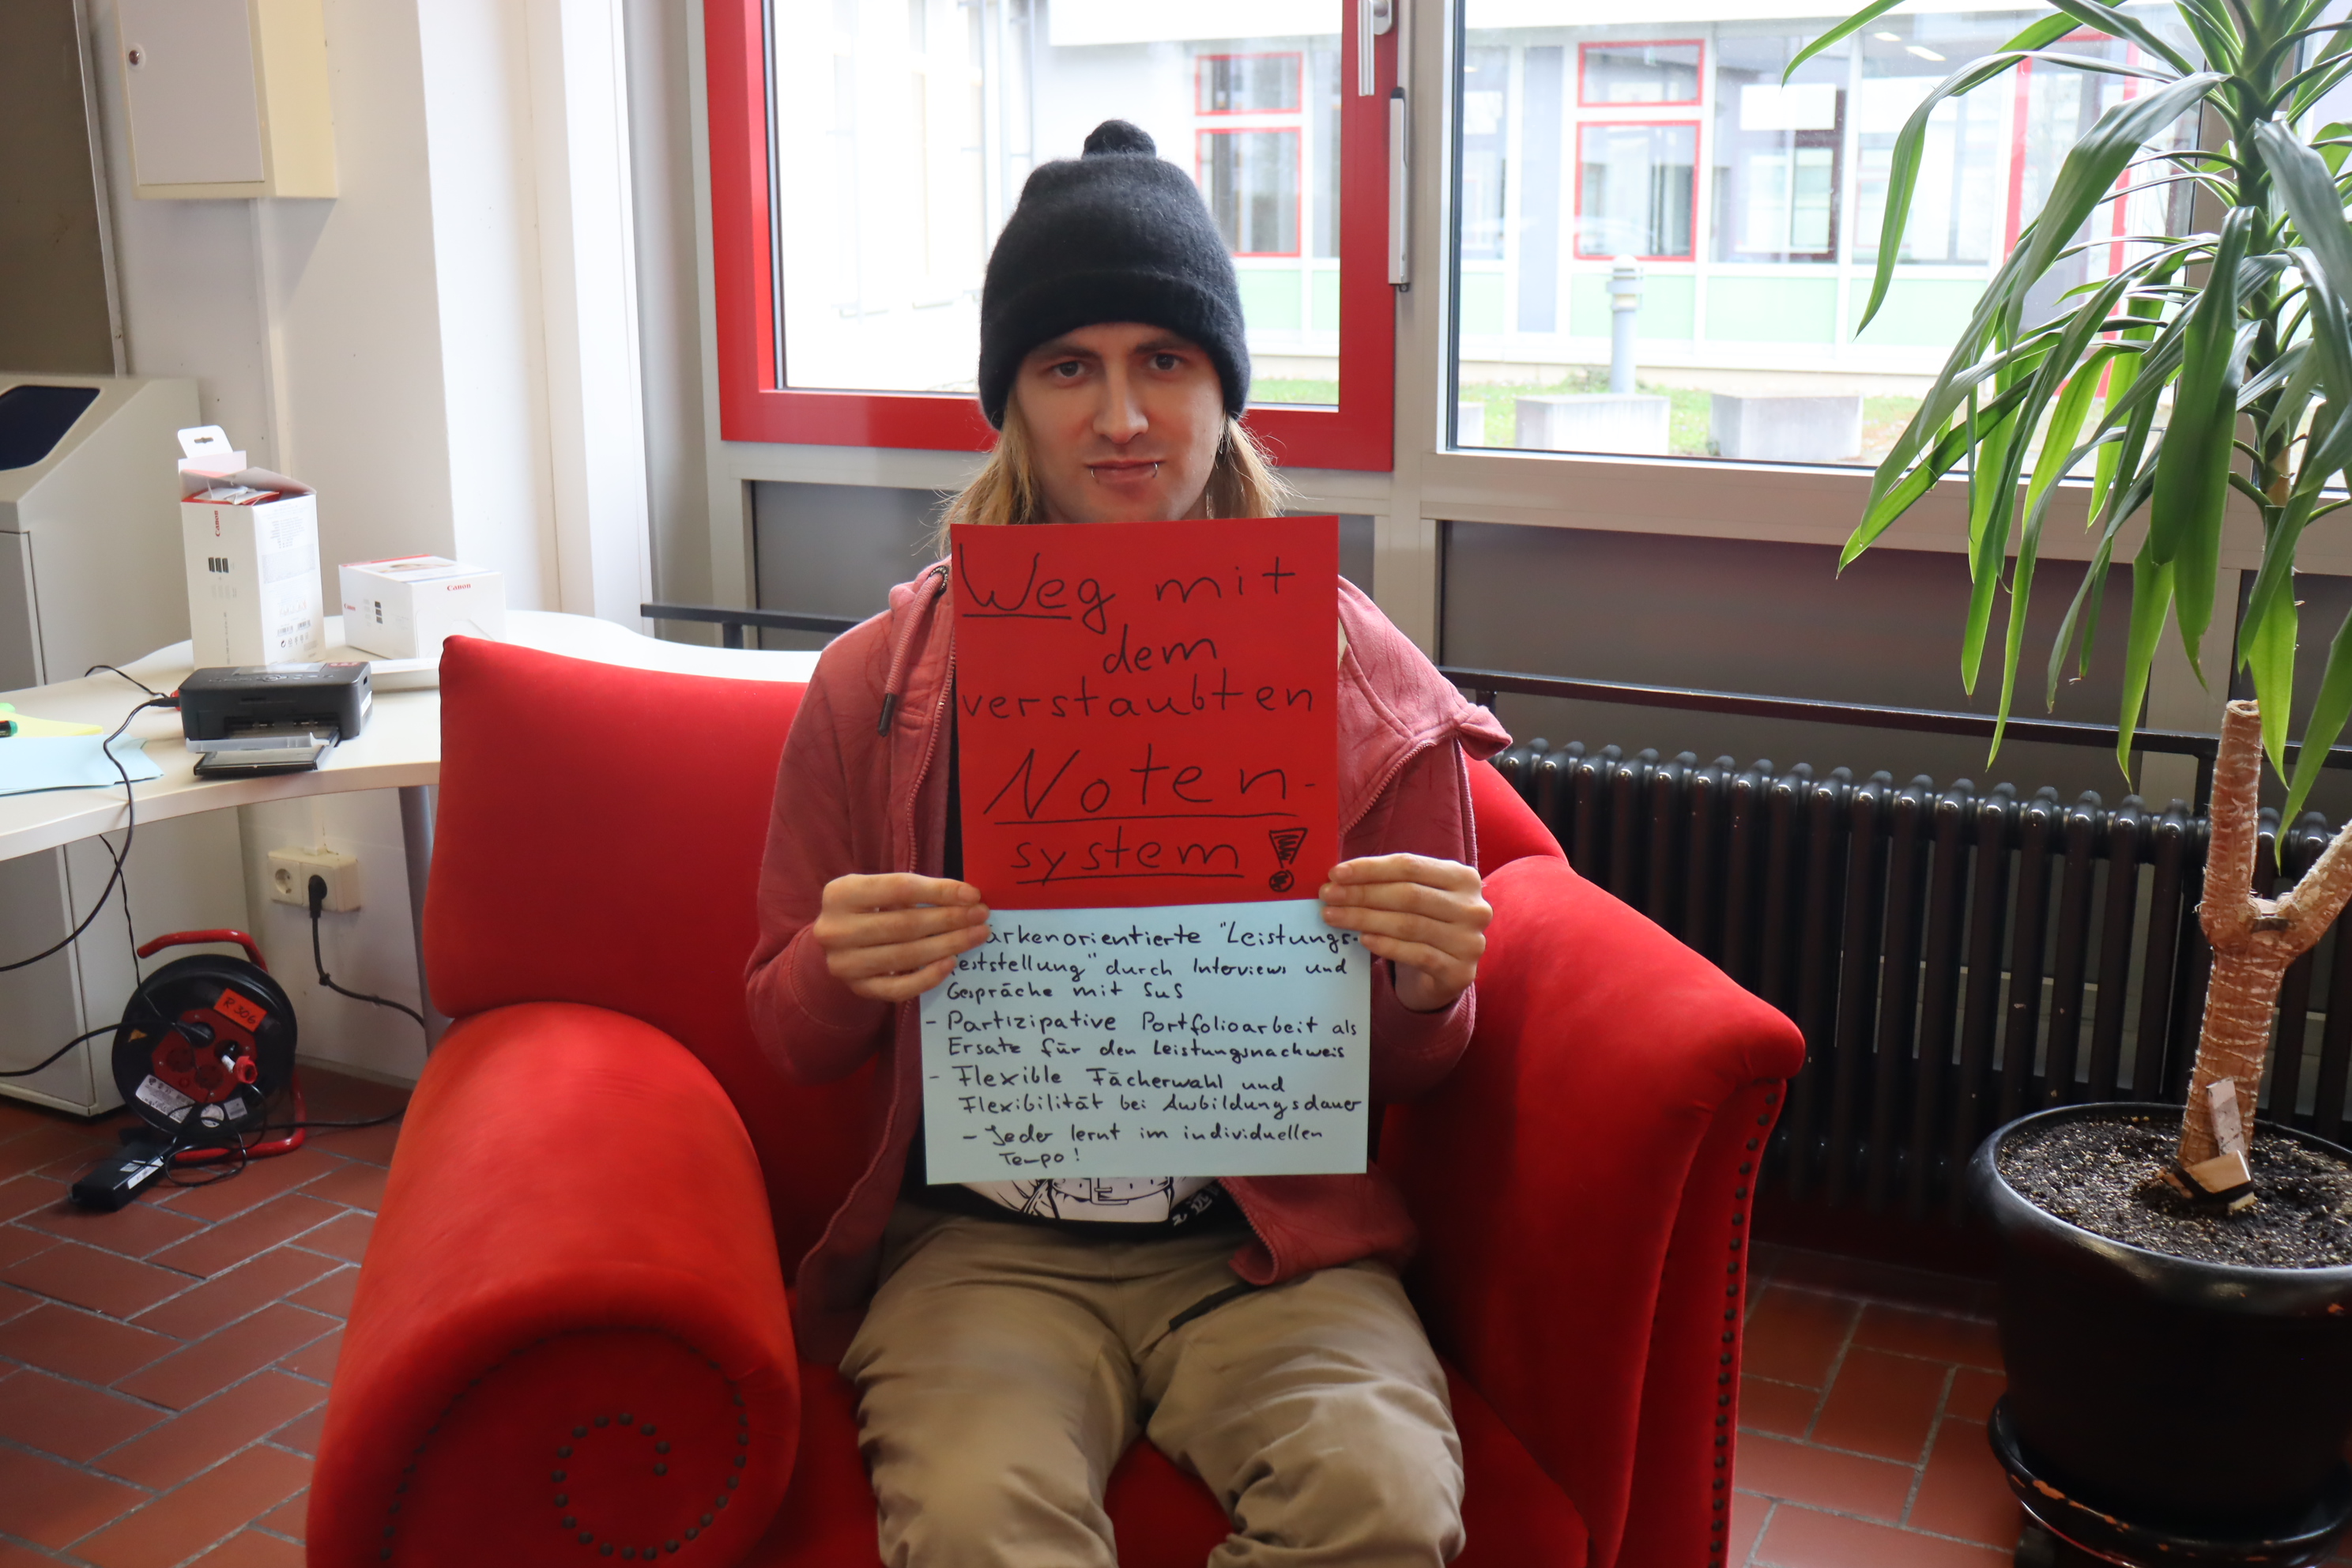 Weg mit
dem
verstaubten
Noten-
system!
ärkenorientierte "Leistungs-
eststellung" durch Interviews und
Gespräche mit SuS
- Partizipative Portfolioarbeit als
Ersatz für den Leistungsnachweis
- Flexible Fächerwahl und
Flexibilität bei Ausbildungsdauer
- Jeder lernt im individuellen
Tempo!
Canon
Canon
Canon
R 306